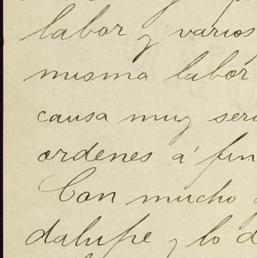 labor y varios
misma labor
causa muy seri
ordenes á fin
Con mucho g
dalupe y lo d